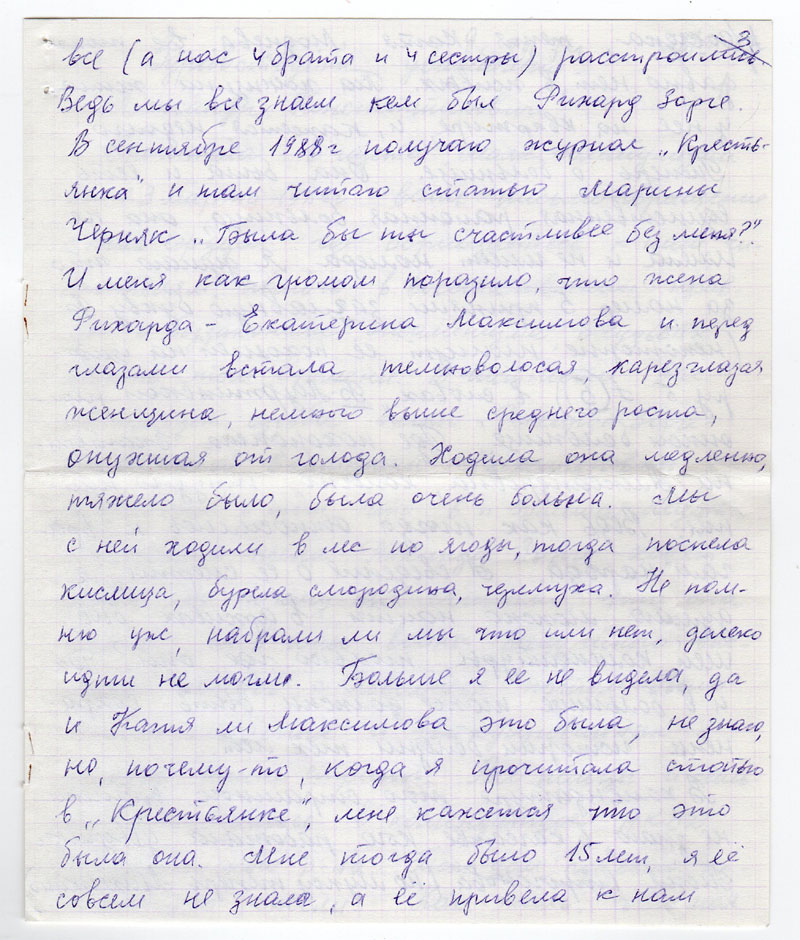 3
все (а нас 4 брата и 4 сестры) расстроились
Ведь мы все знаем кем был Рихард Зорге.
В сентябре 1988г получаю журнал „Кресть-
янка" и там читаю статью Марины
Черняк „Была бы ты счастливее без меня?".
И меня как громом поразило, что жена
Рихарда - Екатерина Максимова и перед
глазами встала темноволосая, кареглазая
женщина, немного выше среднего роста,
опухшая от голода. Ходила она медленно,
тяжело было, была очень больна. Мы
с ней ходили в лес по ягоды, тогда поспела
кислица, бурела смородина, черемуха. Не пом-
ню уж, набрали ли мы что или нет, далеко
идти не могли. Больше я ее не видела, да
и Катя ли Максимова это была, не знаю,
но, почему-то, когда я прочитала статью
в „Крестьянке", мне кажется что это
была она. Мне тогда было 15 лет, я её
совсем не знала, а её привела к нам